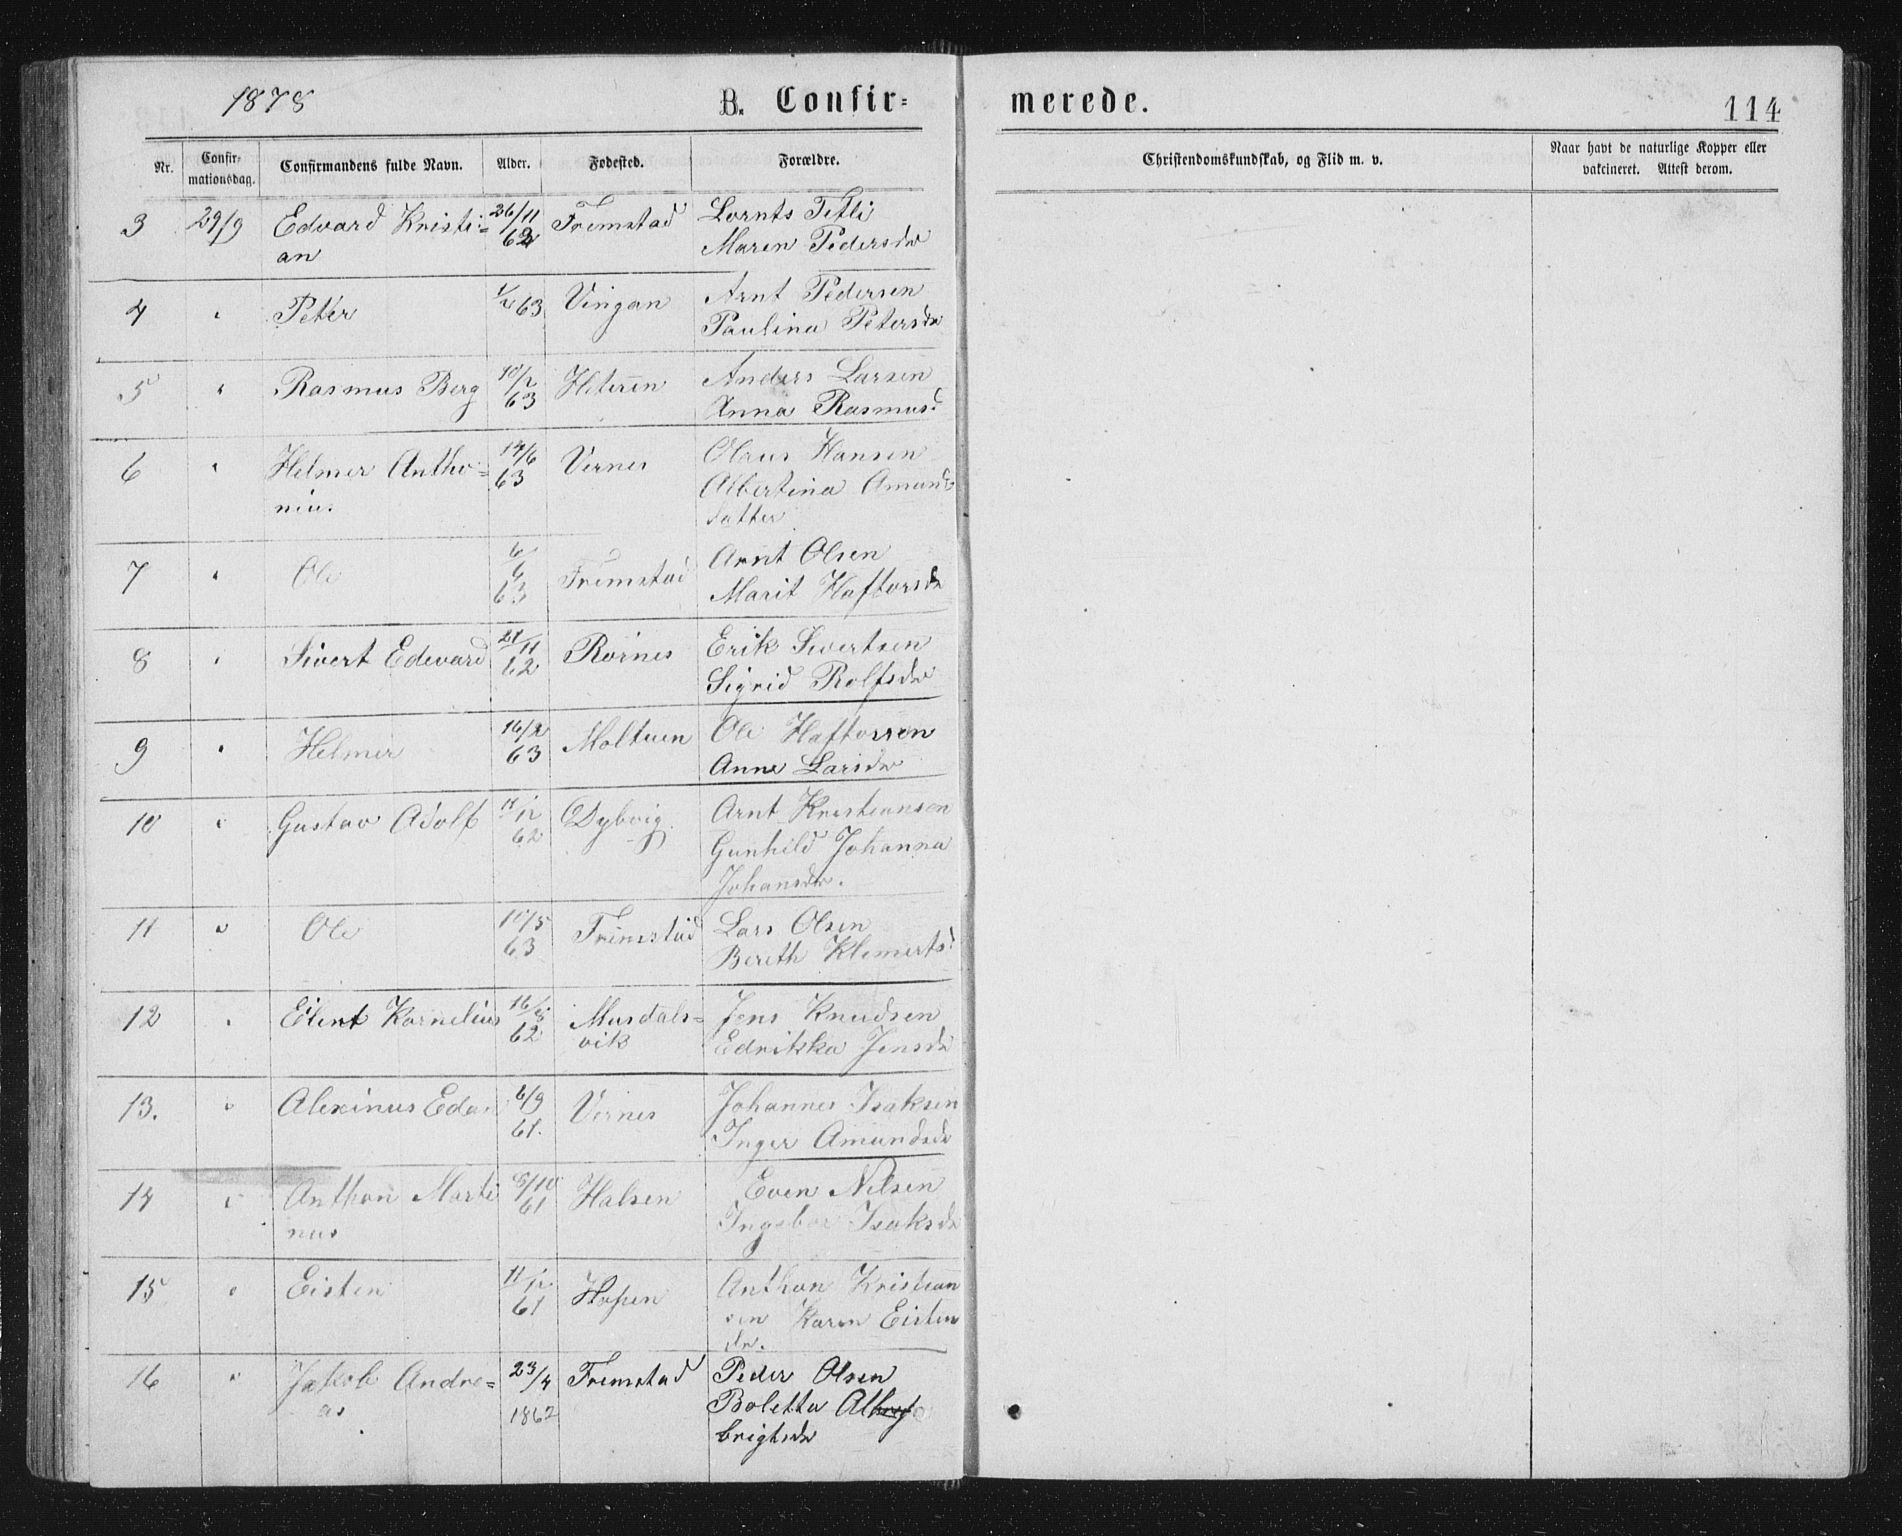 1878 B. Confir= merede. 114
Nr. Confir-mationsdag. Confirmandens fulde Navn. Alder. Fødested. Forældre. Christendomskundskab, og Flid m. v. Naar havt de naturlige Kopper eller vakcineret. Attest derom.
3 29/9 Edvard Kristi= 26/11 Fremstad Lornts Tetli
an 62 Maren Pedersdr
4 " Peter 63 Vingan Arnt Pedersen
Paulina Petersdr
5 " Rasmus Berg 10/2 Anders Larsen
63 Anna Rasmusd
6 " Helmer Antho= 14/6 Vernes Olaus Hansen
niu. 63 Albertina Amund
datter
7 " Ole 6/6 Fremstad Arnt Olsen
63 Marit Haftorsdr
8 " Sivert Edevard 21/11 Rørnes Erik Sivertsen
62 Sigrid Rolfsdr
9 " Helmer 16/2 Moltuen Ole Haftorsen
63 Anne Larsdr
10 " Gustav Adolf 11/12 Dybvig Arnt Kristiansen
62 Gunhild Johanna
Johansdr.
11 " Ole 10/5 Fremstad Lars Olsen
63 Bereth Klemertsd
12 " Elent Kornelius 16/8 Musdals= Jens Knudsen
62 vik Edritska Jensdr
13. " Alexinus Edar 6/9 Vernes Johannes Isaksen
61. Inger Amundsdr
14 " Anthon Marti 8/10 Halsen Even Nilsen
nus 61 Ingebor Isaksdr
15 " Eisten 11/12 Hopen Anthon Kristian
61 sen Karen Eisten
dr.
16 " Jakob Andre= 23/4 Fremstad Peder Olsen
as 1862 Boletta Al
brigtsdr